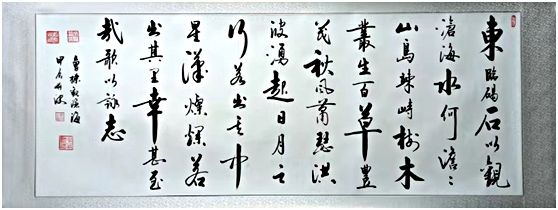 東臨碣石以觀
滄海水何澹々
山島竦峙樹木
叢生百草豐
茂秋風蕭瑟洪
波湧起日月之
行若出其中
星漢燦爛若
出其里幸甚至
哉歌以詠志
曹操觀滄海
甲辰